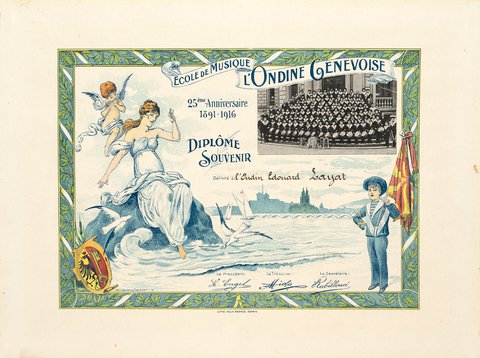 ÉCOLE DE MUSIQUE
L'ONDINE GENEVOISE
25ème Anniversaire
1891-1916
DIPLÔME
SOUVENIR
Délivré à l'Ondin Edouard Layat
Le Président
Le Trésorier
Le Secrétaire: